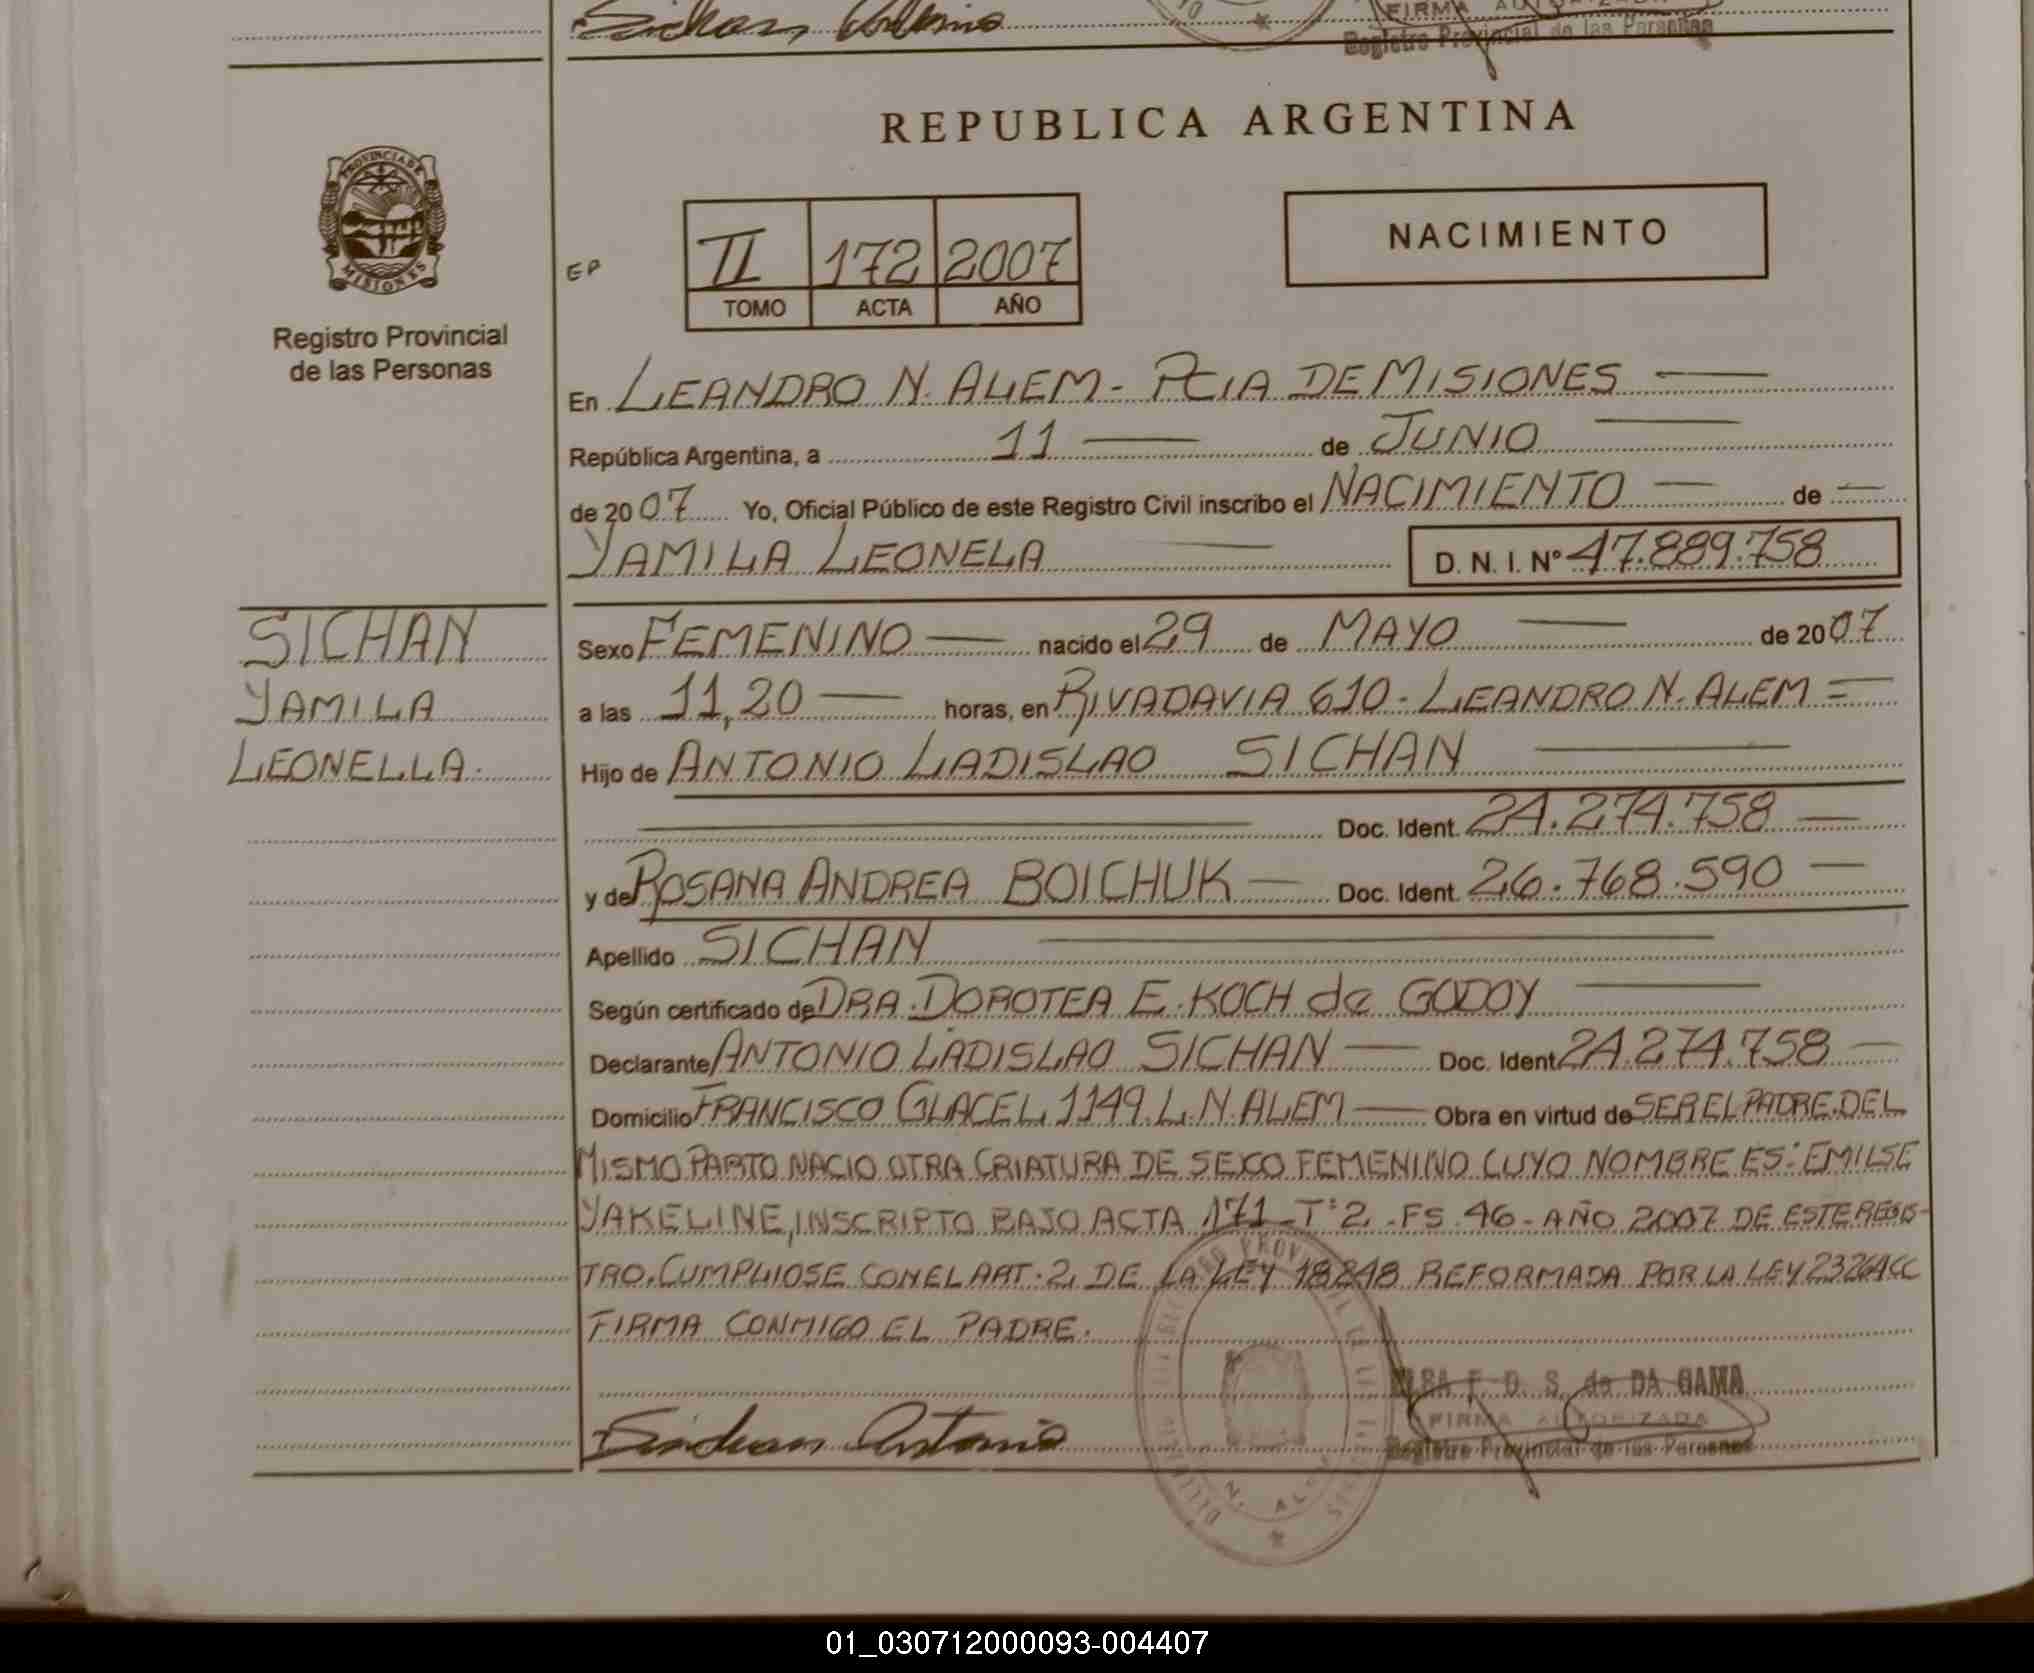 Sichan, Antonio
FIRMA AUTORIZADA
Registro Provincial de las Personas
PROVINCIA DE
MISIONES
Registro Provincial
de las Personas
REPUBLICA ARGENTINA
EP
II 172 2007
TOMO ACTA AÑO
NACIMIENTO
En LEANDRO N. ALEM - PCIA DE MISIONES
República Argentina, a 11 de JUNIO
de 2007 Yo, Oficial Público de este Registro Civil inscribo el NACIMIENTO de
YAMILA LEONELA D. N. I. Nº 47.889.758
SICHAN
YAMILA
LEONELLA.
Sexo FEMENINO nacido el 29 de MAYO de 2007
a las 11,20 horas, en RIVADAVIA 610 - LEANDRO N. ALEM =
Hijo de ANTONIO LADISLAO SICHAN
Doc. Ident. 24.274.758
y de ROSANA ANDREA BOICHUK Doc. Ident. 26.768.590
Apellido SICHAN
Según certificado de DRA. DOROTEA E. KOCH de GODOY
Declarante ANTONIO LADISLAO SICHAN Doc. Ident 24.274.758
Domicilio FRANCISCO GLACEL 1149. L. N. ALEM Obra en virtud de SER EL PADRE. DEL
MISMO PARTO NACIO OTRA CRIATURA DE SEXO FEMENINO CUYO NOMBRE ES: EMILSE
YAKELINE, INSCRIPTO BAJO ACTA 171 - Tº 2. - FS. 46 - AÑO 2007 DE ESTE REGIS-
TRO. CUMPLIOSE CON EL ART. 2. DE LA LEY 18248 REFORMADA POR LA LEY 23264 CC
FIRMA CONMIGO EL PADRE.
ELSA F. D. S. de DA GAMA
FIRMA AUTORIZADA
Registro Provincial de las Personas
Sichan Antonio
N. ALEM
01_030712000093-004407